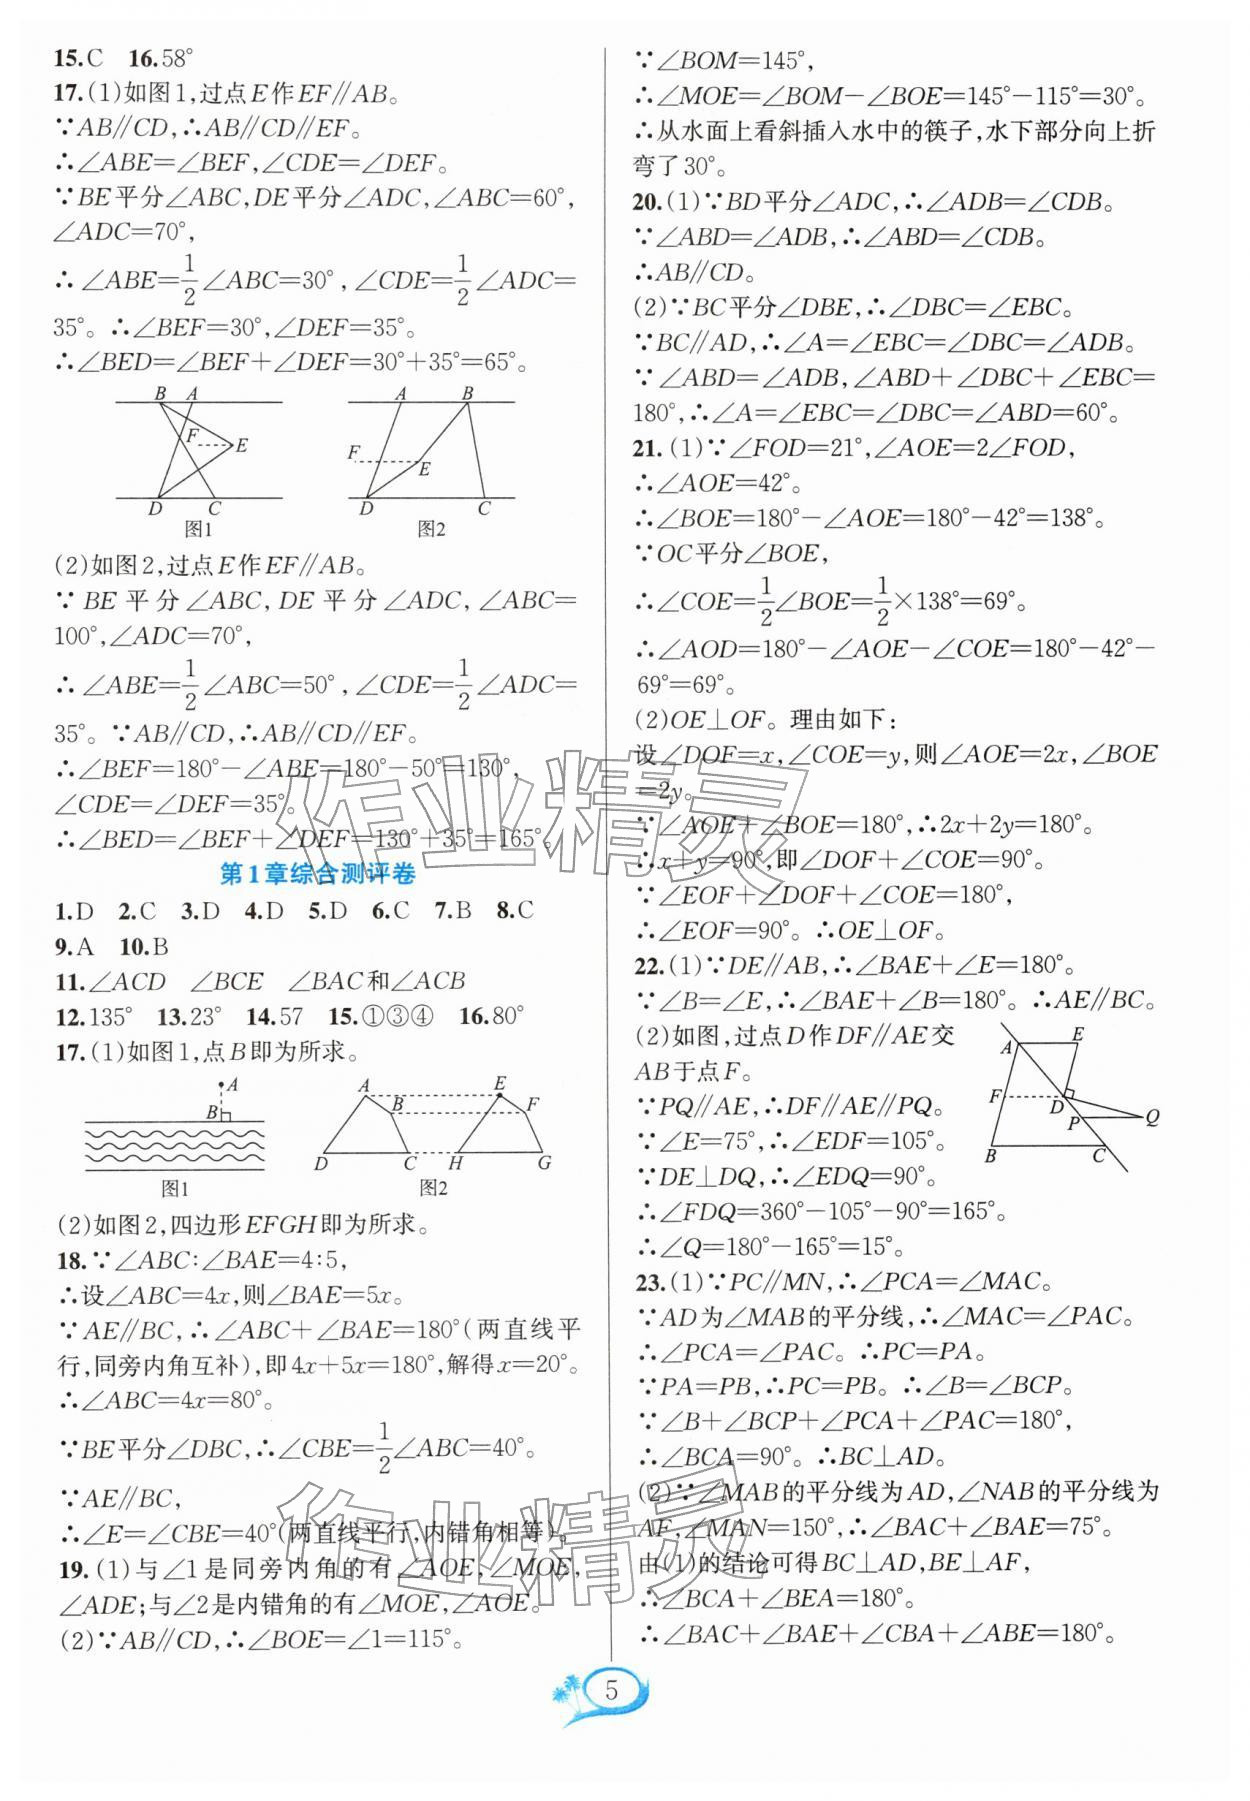 15.C 16.58°
17.(1)如图1,过点E作EF∥AB。
∵AB∥CD,∴AB∥CD∥EF。
∴∠ABE=∠BEF,∠CDE=∠DEF。
∵BE平分∠ABC,DE平分∠ADC,∠ABC=60°,
∠ADC=70°,
∴∠ABE=1/2∠ABC=30°,∠CDE=1/2∠ADC=
35°。∴∠BEF=30°,∠DEF=35°。
∴∠BED=∠BEF+∠DEF=30°+35°=65°。
B A F E D C 图1
A B F E D C 图2
(2)如图2,过点E作EF∥AB。
∵BE平分∠ABC,DE平分∠ADC,∠ABC=
100°,∠ADC=70°,
∴∠ABE=1/2∠ABC=50°,∠CDE=1/2∠ADC=
35°。∵AB∥CD,∴AB∥CD∥EF。
∴∠BEF=180°-∠ABE=180°-50°=130°,
∠CDE=∠DEF=35°。
∴∠BED=∠BEF+∠DEF=130°+35°=165°。
第1章综合测评卷
1.D 2.C 3.D 4.D 5.D 6.C 7.B 8.C
9.A 10.B
11.∠ACD ∠BCE ∠BAC和∠ACB
12.135° 13.23° 14.57 15.①③④ 16.80°
17.(1)如图1,点B即为所求。
A B 图1
A E B F D C H G 图2
(2)如图2,四边形EFGH即为所求。
18.∵∠ABC:∠BAE=4:5,
∴设∠ABC=4x,则∠BAE=5x。
∵AE∥BC,∴∠ABC+∠BAE=180°(两直线平
行,同旁内角互补),即4x+5x=180°,解得x=20°。
∴∠ABC=4x=80°。
∵BE平分∠DBC,∴∠CBE=1/2∠ABC=40°。
∵AE∥BC,
∴∠E=∠CBE=40°(两直线平行,内错角相等)。
19.(1)与∠1是同旁内角的有∠AOE,∠MOE,
∠ADE;与∠2是内错角的有∠MOE,∠AOE。
(2)∵AB∥CD,∴∠BOE=∠1=115°。
∵∠BOM=145°,
∴∠MOE=∠BOM-∠BOE=145°-115°=30°。
∴从水面上看斜插入水中的筷子,水下部分向上折
弯了30°。
20.(1)∵BD平分∠ADC,∴∠ADB=∠CDB。
∵∠ABD=∠ADB,∴∠ABD=∠CDB。
∴AB∥CD。
(2)∵BC平分∠DBE,∴∠DBC=∠EBC。
∵BC∥AD,∴∠A=∠EBC=∠DBC=∠ADB。
∵∠ABD=∠ADB,∠ABD+∠DBC+∠EBC=
180°,∴∠A=∠EBC=∠DBC=∠ABD=60°。
21.(1)∵∠FOD=21°,∠AOE=2∠FOD,
∴∠AOE=42°。
∴∠BOE=180°-∠AOE=180°-42°=138°。
∵OC平分∠BOE,
∴∠COE=1/2∠BOE=1/2×138°=69°。
∴∠AOD=180°-∠AOE-∠COE=180°-42°-
69°=69°。
(2)OE⊥OF。理由如下:
设∠DOF=x,∠COE=y,则∠AOE=2x,∠BOE
=2y。
∵∠AOE+∠BOE=180°,∴2x+2y=180°。
∴x+y=90°,即∠DOF+∠COE=90°。
∵∠EOF+∠DOF+∠COE=180°,
∴∠EOF=90°。∴OE⊥OF。
22.(1)∵DE∥AB,∴∠BAE+∠E=180°。
∵∠B=∠E,∴∠BAE+∠B=180°。∴AE∥BC。
(2)如图,过点D作DF∥AE交
AB于点F。
∵PQ∥AE,∴DF∥AE∥PQ。
∵∠E=75°,∴∠EDF=105°。
∵DE⊥DQ,∴∠EDQ=90°。
∴∠FDQ=360°-105°-90°=165°。
∴∠Q=180°-165°=15°。
A E F D P Q B C
23.(1)∵PC∥MN,∴∠PCA=∠MAC。
∵AD为∠MAB的平分线,∴∠MAC=∠PAC。
∴∠PCA=∠PAC。∴PC=PA。
∵PA=PB,∴PC=PB。∴∠B=∠BCP。
∵∠B+∠BCP+∠PCA+∠PAC=180°,
∴∠BCA=90°。∴BC⊥AD。
(2)∵∠MAB的平分线为AD,∠NAB的平分线为
AF,∠MAN=150°,∴∠BAC+∠BAE=75°。
由(1)的结论可得BC⊥AD,BE⊥AF,
∴∠BCA+∠BEA=180°。
∴∠BAC+∠BAE+∠CBA+∠ABE=180°。
5
作业精灵
作业精灵